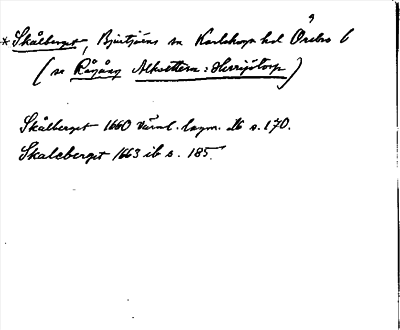 * Skålberget, Bjurtjärns sn Karlskoga hd Örebro l
(se Råjång Alkvettern : Herrsjötorp)
Skålberget 1660 Värml. lagm. db s. 170.
Skaleberget 1663 ib s. 185.